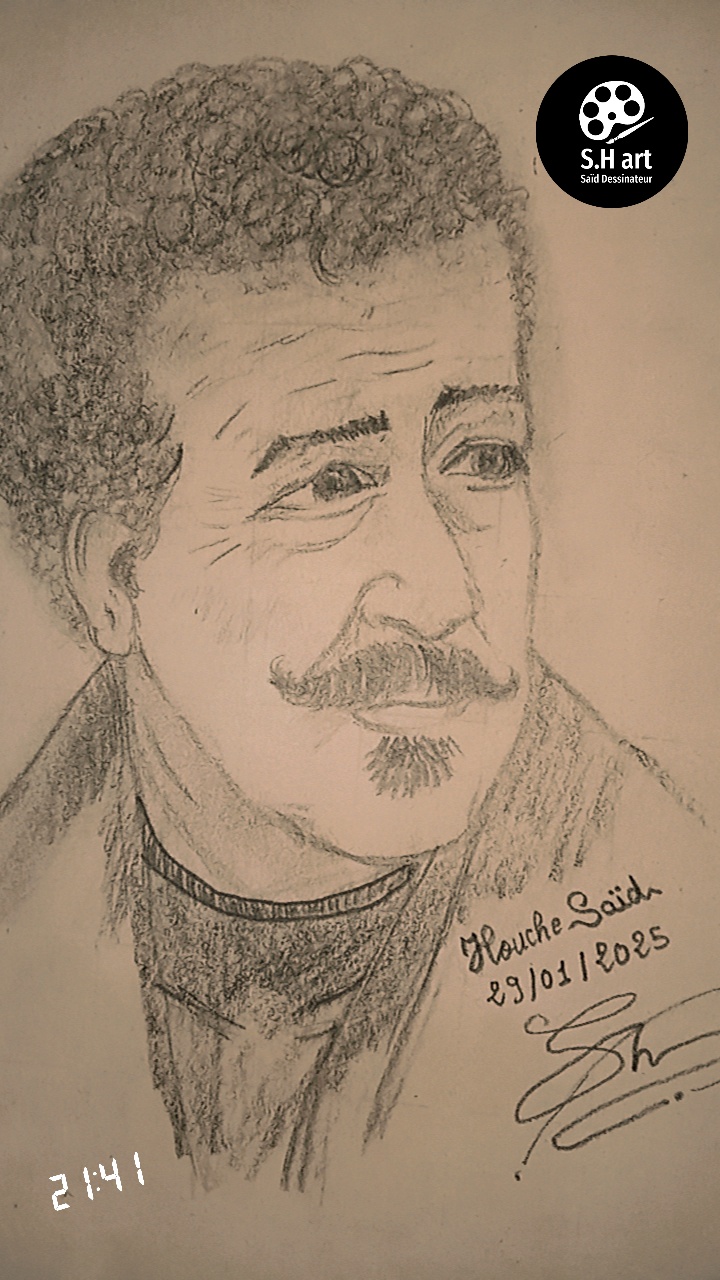 S.H art
Saïd Dessinateur
Houche Saïd
29/01/2025
21:41